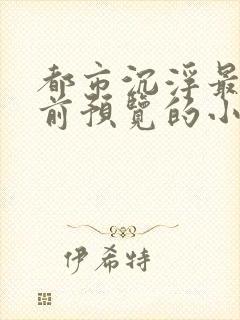 都市沉浮最
前预览的小
伊希特